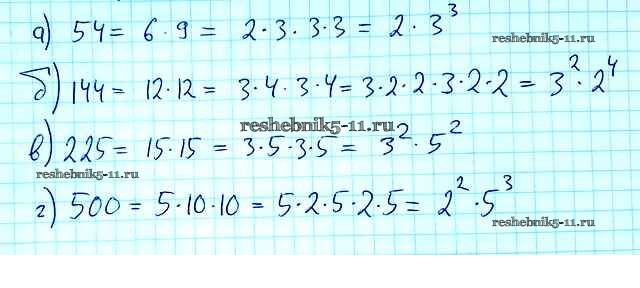 а) 54 = 6 · 9 = 2 · 3 · 3 · 3 = 2 · 3³
reshebnik5-11.ru
б) 144 = 12 · 12 = 3 · 4 · 3 · 4 = 3 · 2 · 2 · 3 · 2 · 2 = 3² · 2⁴
reshebnik5-11.ru
в) 225 = 15 · 15 = 3 · 5 · 3 · 5 = 3² · 5²
reshebnik5-11.ru
г) 500 = 5 · 10 · 10 = 5 · 2 · 5 · 2 · 5 = 2² · 5³
reshebnik5-11.ru